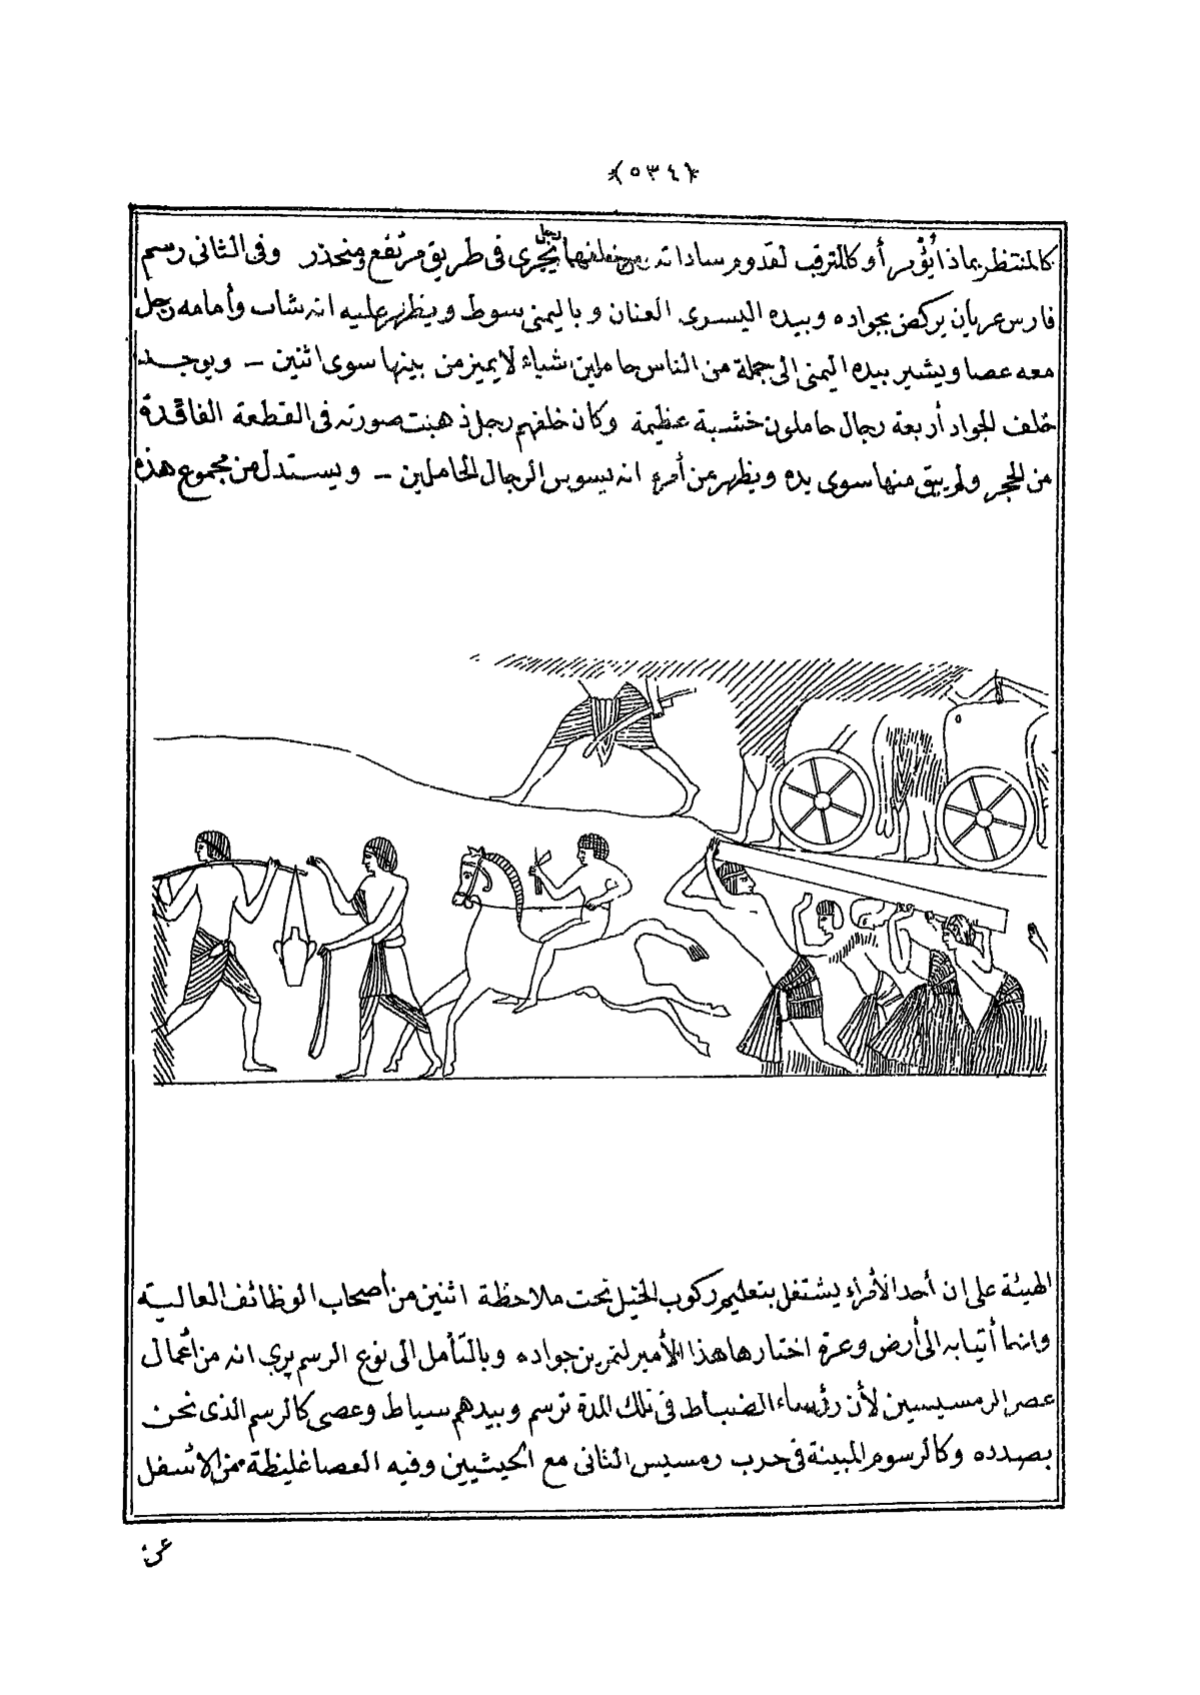 ﴿٥٣٤﴾
كالمنتظر بماذا يُؤْمر أو كالمترقب لقدوم ساداته ومن خلفهما رجل يجرى فى طريق مرتفع ومنحدر وفى الثانى رسم
فارس عريان يركض بجواده وبيده اليسرى العنان وباليمنى سوط ويظهر عليه انه شاب وأمامه رجل
معه عصا ويشير بيده اليمنى الى جملة من الناس حاملين شياء لا يميز من بينها سوى اثنين – ويوجد
خلف الجواد أربعة رجال حاملون خشبة عظيمة وكان خلفهم رجل ذهبت صورته فى القطعة الفاقدة
من الحجر ولم يبق منها سوى يده ويظهر من أمره انه يسوس الرجال الحاملين – ويستدل من مجموع هذه
الهيئة على ان أحد الأمراء يشتغل بتعليم ركوب الخيل تحت ملاحظة اثنين من أصحاب الوظائف العالية
وانما أتيا به الى أرض وعرة اختارها هذا الأمير لتمرين جواده وبالتأمل الى نوع الرسم يرى انه من أعمال
عصر الرمسيسين لأن رؤساء الضباط فى تلك المدة ترسم وبيدهم سياط وعصى كالرسم الذى نحن
بصدده وكالرسوم المبينة فى حرب رمسيس الثانى مع الحيثيين وفيه العصا غليظة من الاسفل
عن